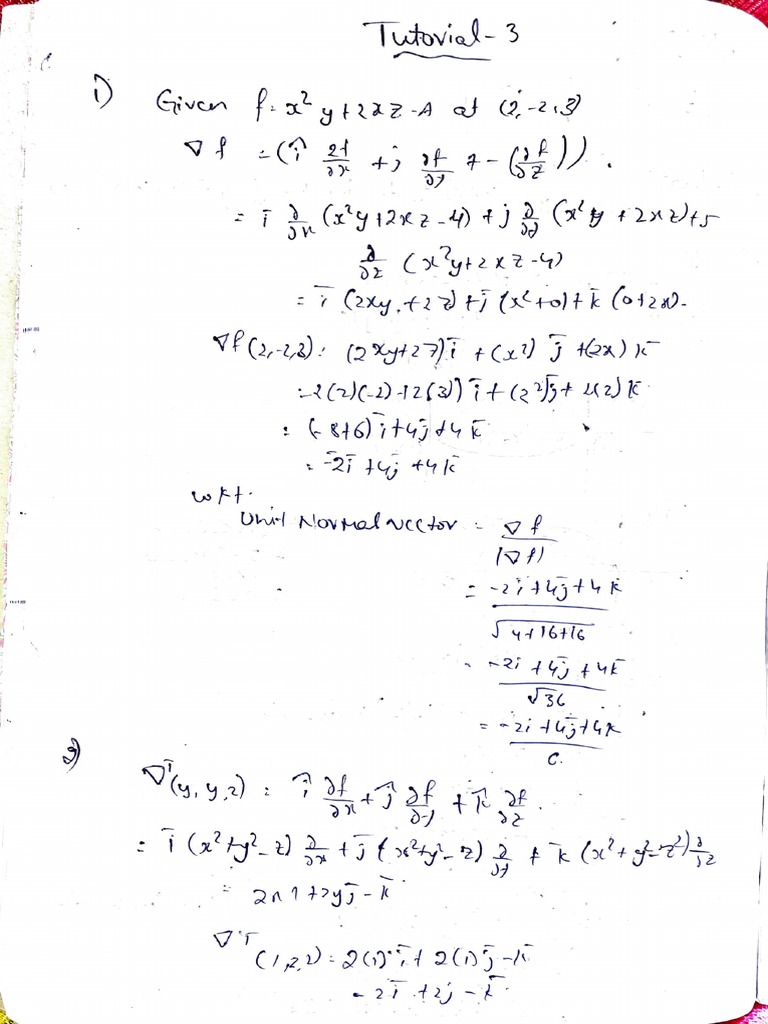 Tutorial-3
1) Given f = x² y + 2xz - 4 at (2, -2, 3)
∇f = (î ∂f/∂x + j ∂f/∂y + - (∂f/∂z)).
= i ∂/∂x (x²y + 2xz - 4) + j ∂/∂y (x²y + 2xz) + 5
∂/∂z (x²y + 2xz - 4)
= i̅ (2xy + 2z) + j̅ (x² + 0) + k̅ (0 + 2x).
∇f(2,-2,3) : (2xy + 2z) i̅ + (x²) j̅ + (2x) k̅
= 2(2)(-2) + 2(3)) i̅ + (2²) j̅ + 2(2) k̅
= (-8+6) i̅ + 4j̅ + 4k̅
= -2i̅ + 4j̅ + 4k̅
wkt.
Unit Normal vector = ∇f
|∇f|
= -2i + 4j̅ + 4k
√4+16+16
= -2i + 4j̅ + 4k̅
√36
= -2i + 4j̅ + 4k
6.
2)
∇T(y, y, z) = î ∂f/∂x + ĵ ∂f/∂y + k̅ ∂f/∂z.
= i̅ (x² + y² - z) ∂/∂x + j̅ (x² + y² - z) ∂/∂y + k̅ (x² + y² - z) ∂/∂z
= 2x i + 2y j̅ - k̅
∇T (1,2,2) = 2(1) i̅ + 2(1) j̅ - k̅
= 2i̅ + 2j - k̅